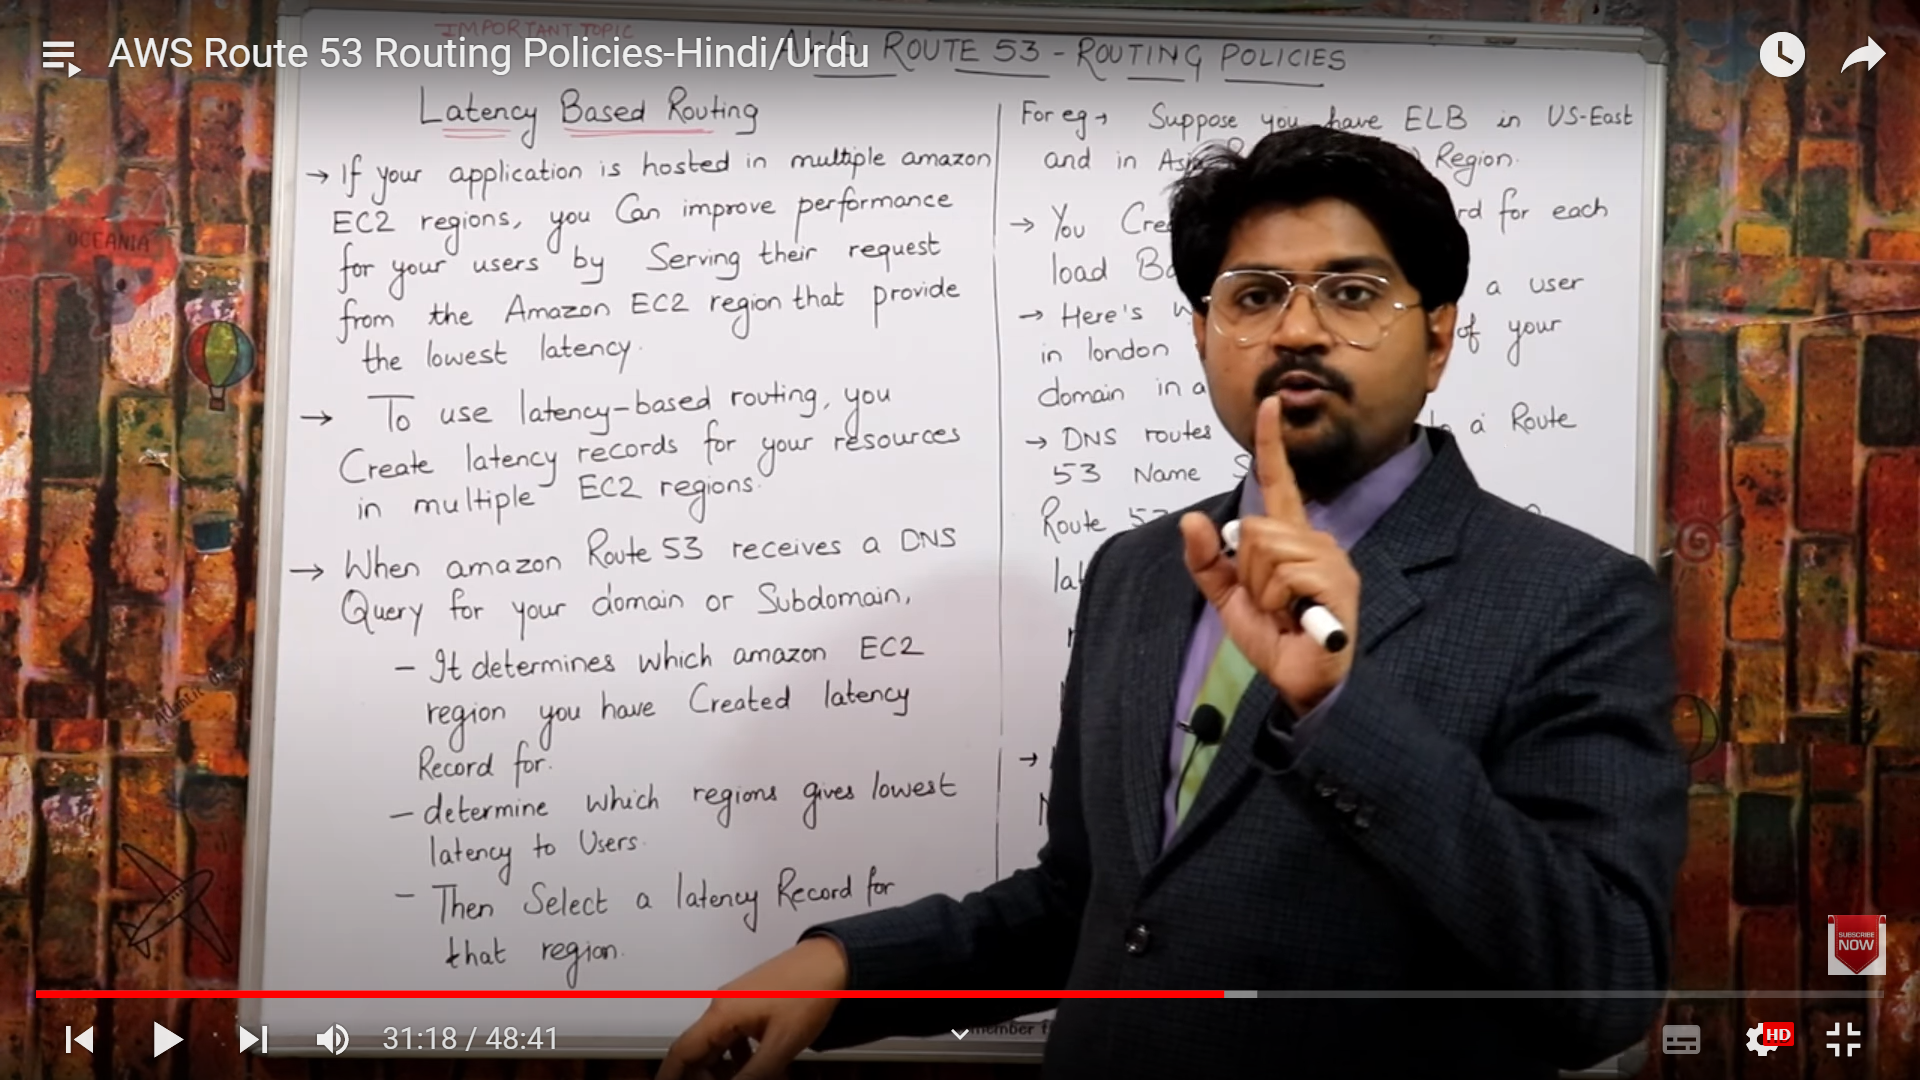 IMPORTANT TOPIC
AWS Route 53 Routing Policies-Hindi/Urdu
ROUTE 53 - ROUTING POLICIES
Latency Based Routing
→ If your application is hosted in multiple amazon
EC2 regions, you Can improve performance
for your users by Serving their request
from the Amazon EC2 region that provide
the lowest latency.
→ To use latency-based routing, you
Create latency records for your resources
in multiple EC2 regions.
→ When amazon Route 53 receives a DNS
Query for your domain or Subdomain,
- It determines which amazon EC2
region you have Created latency
Record for.
- determine which regions gives lowest
latency to Users.
- Then Select a latency Record for
that region.
For eg → Suppose you have ELB in US-East
and in Region.
→ You for each
load
→ Here's a user
in london of your
domain in a
→ DNS routes a Route
53 Name
Route 53
OCEANIA
SUBSCRIBE
NOW
31:18 / 48:41
HD